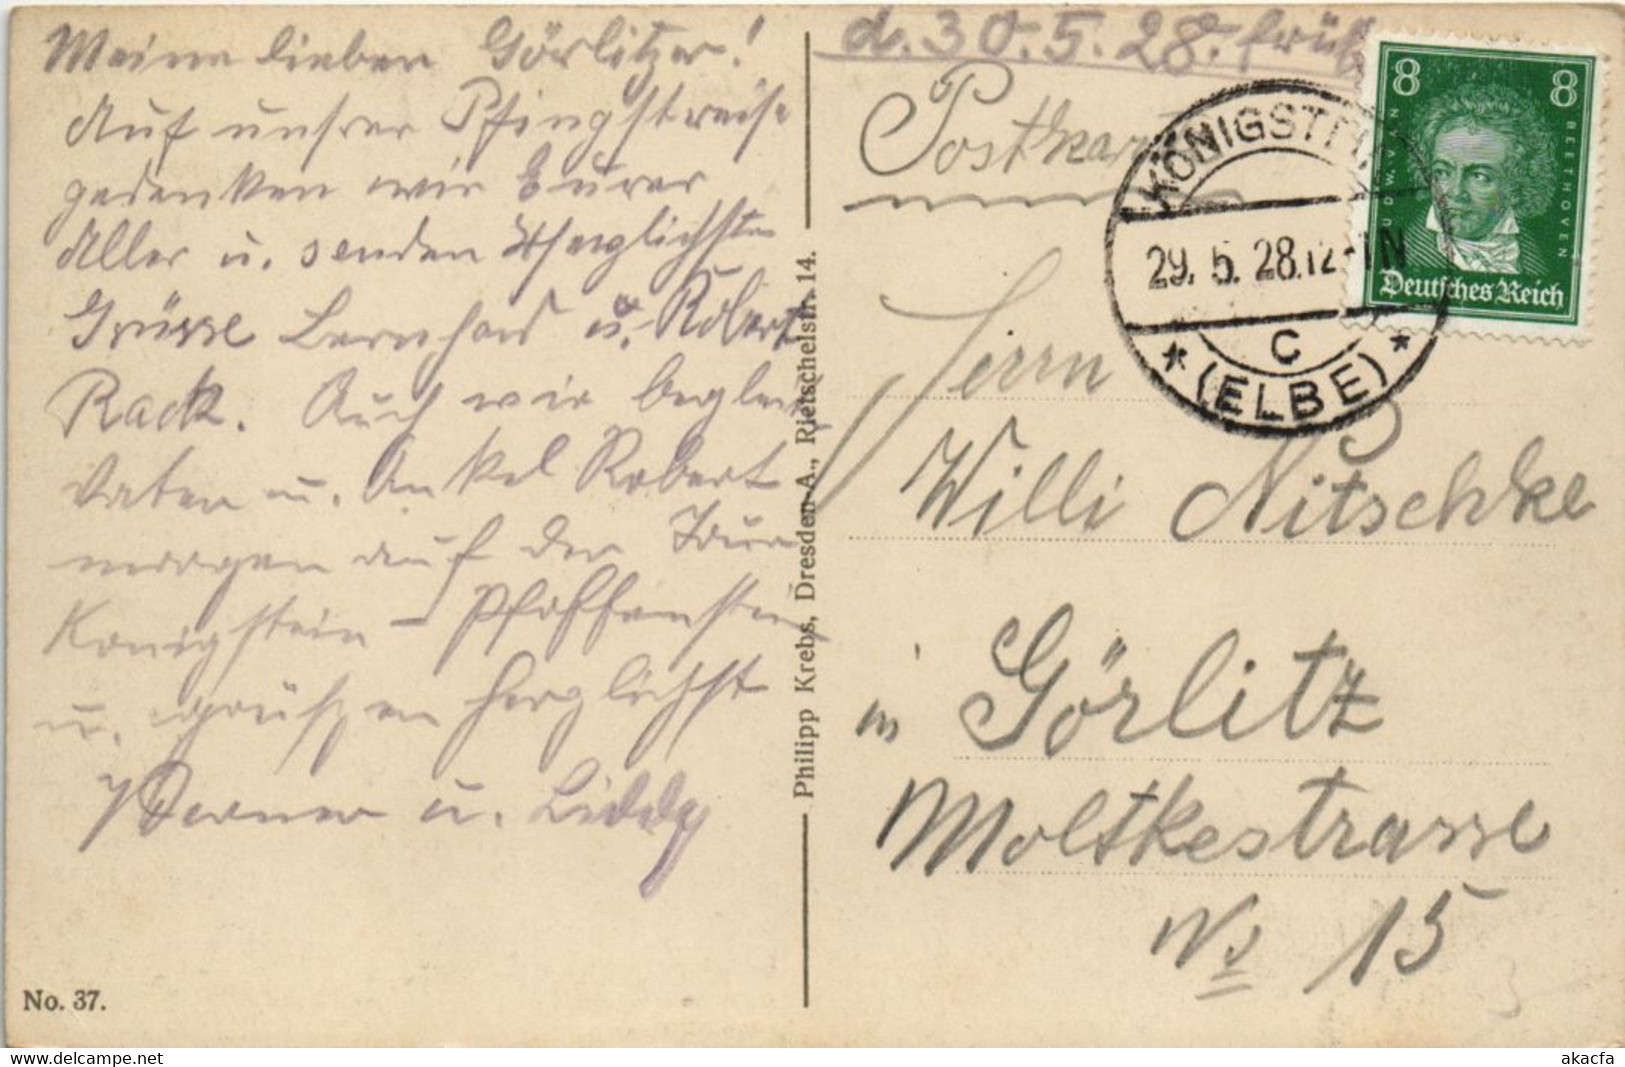 Meine lieben Görlitzer!
Auf unsrer Pfingstreise
gedenken wir Eurer
Aller u. senden Herzlichste
Grüsse Bernhard u. Robert
Rack. Auch wir begleiten
Vatern u. Onkel Robert
morgen auf der Tour
Königstein - Pfaffenstein
u. grüßen herzlichst
Werner u. Liddy
No. 37.
Philipp Krebs, Dresden-A., Rietschelstr. 14.
d. 30.5.28. früh
Postkarte
KÖNIGSTEIN
29. 5. 28. 12-1 N
C
* (ELBE) *
8 8
LUDW. VAN BEETHOVEN
Deutsches Reich
Herrn
Willi Nitschke
in Görlitz
Moltkestrasse
No 15
akpool.de